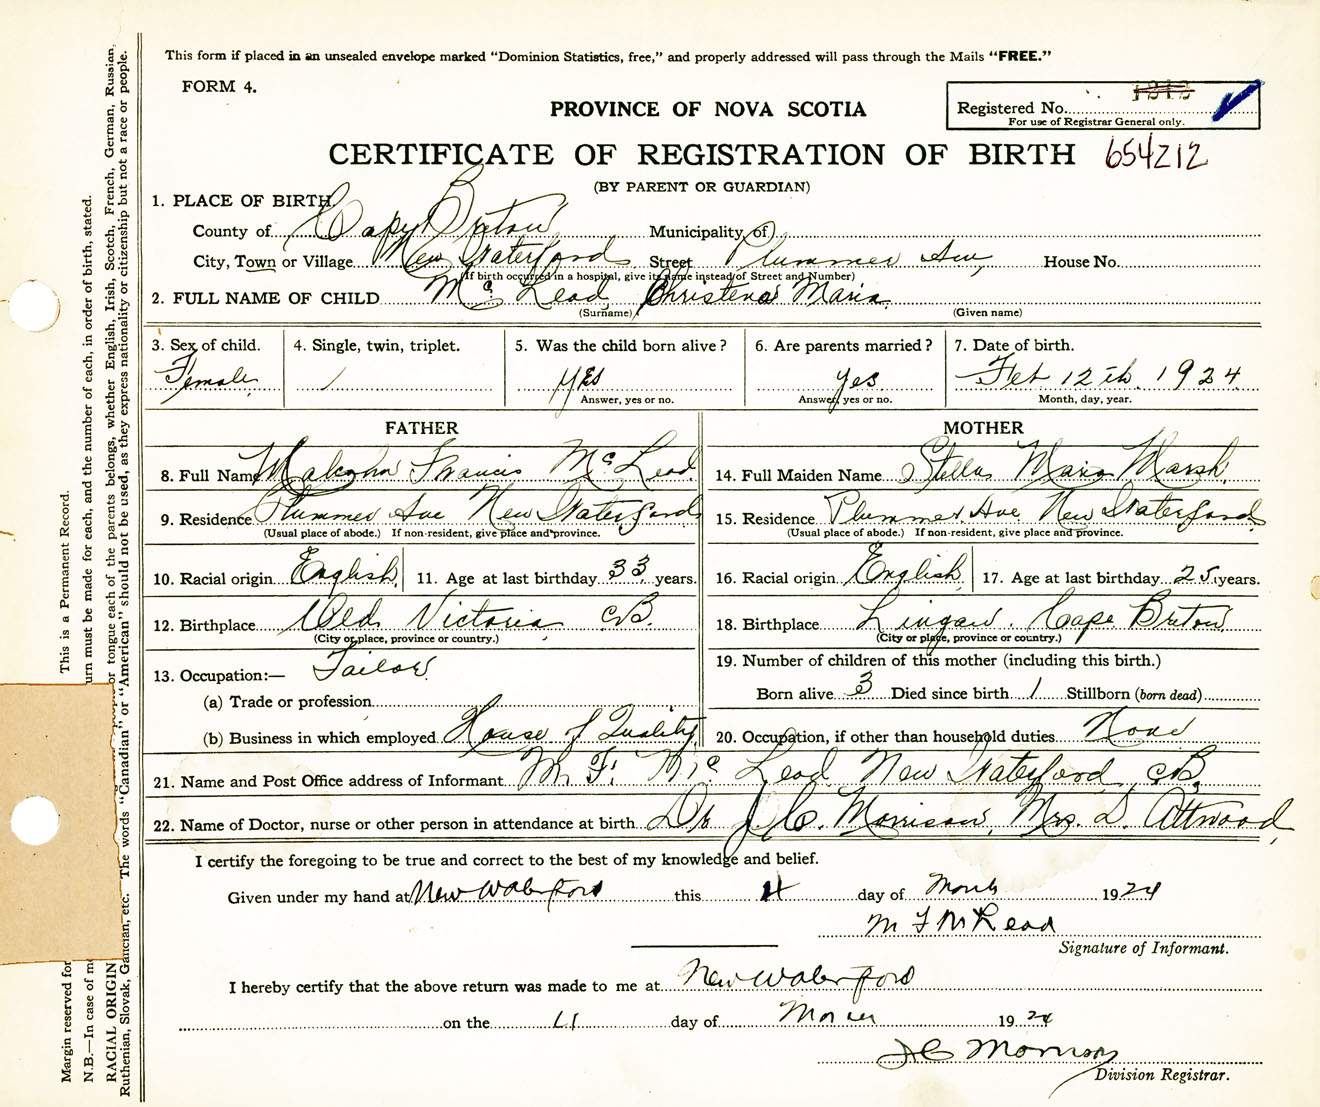 This form if placed in an unsealed envelope marked "Dominion Statistics, free," and properly addressed will pass through the Mails "FREE."
FORM 4.
PROVINCE OF NOVA SCOTIA
Registered No.
For use of Registrar General only.
CERTIFICATE OF REGISTRATION OF BIRTH 654212
(BY PARENT OR GUARDIAN)
1. PLACE OF BIRTH
County of Cape Breton Municipality of
City, Town or Village New Waterford Street Plummer Ave, House No.
(If birth occurred in a hospital, give its name instead of Street and Number)
2. FULL NAME OF CHILD Mc Leod, Christena Maria
(Surname) (Given name)
3. Sex of child. 4. Single, twin, triplet. 5. Was the child born alive? 6. Are parents married? 7. Date of birth.
Female / Yes yes Feb 12th. 1924
Answer, yes or no. Answer, yes or no. Month, day, year.
FATHER MOTHER
8. Full Name Malcolm Francis Mc Leod. 14. Full Maiden Name Stella Maria Marsh.
9. Residence Plummer Ave New Waterford 15. Residence Plummer Ave New Waterford
(Usual place of abode.) If non-resident, give place and province. (Usual place of abode.) If non-resident, give place and province.
10. Racial origin English 11. Age at last birthday 33 years. 16. Racial origin English 17. Age at last birthday 25 years.
12. Birthplace Old Victoria, C.B. 18. Birthplace Lingan. Cape Breton
(City or place, province or country.) (City or place, province or country.)
13. Occupation:— Tailor 19. Number of children of this mother (including this birth.)
(a) Trade or profession Born alive 3 Died since birth 1 Stillborn (born dead)
(b) Business in which employed House of Quality 20. Occupation, if other than household duties None
21. Name and Post Office address of Informant M. F. Mc Leod New Waterford C.B.
22. Name of Doctor, nurse or other person in attendance at birth Dr J. C. Morrison, Mrs. D. Attwood,
I certify the foregoing to be true and correct to the best of my knowledge and belief.
Given under my hand at New Waterford this 4 day of March 1924
M F McLeod
Signature of Informant.
I hereby certify that the above return was made to me at New Waterford
on the day of March 1924
JC Morrison
Division Registrar.
Margin reserved for This is a Permanent Record.
N.B.—In case of urn must be made for each, and the number of each, in order of birth, stated.
RACIAL ORIGIN or tongue each of the parents belongs, whether English, Irish, Scotch, French, German, Russian,
Ruthenian, Slovak, Galician, etc. The words "Canadian" or "American" should not be used, as they express nationality or citizenship but not a race or people.